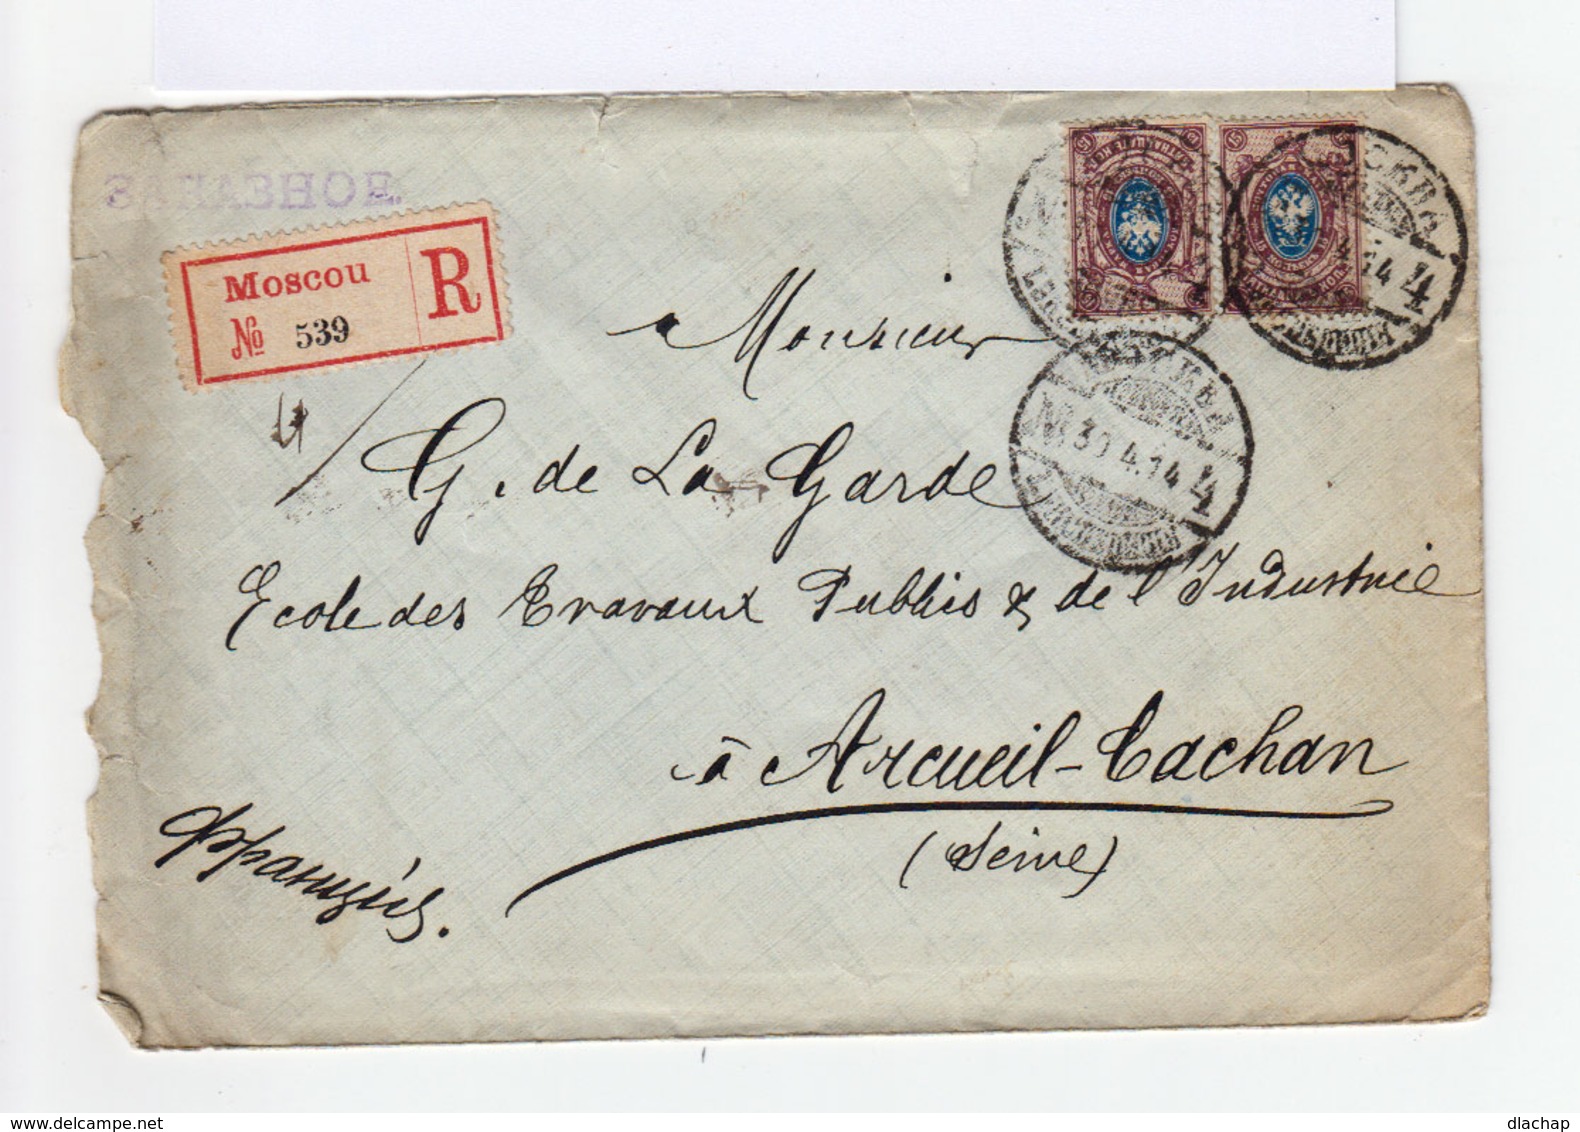 ЗАКАЗНОЕ.
Moscou
№ 539
R
МОСКВА
14 4
МОСКВА
30.4.14 4
Monsieur
G. de La Garde
Ecole des Travaux Publics & de l'Industrie
à Arcueil-Cachan
(Seine)
Франція.
delcampe.net
dlachap